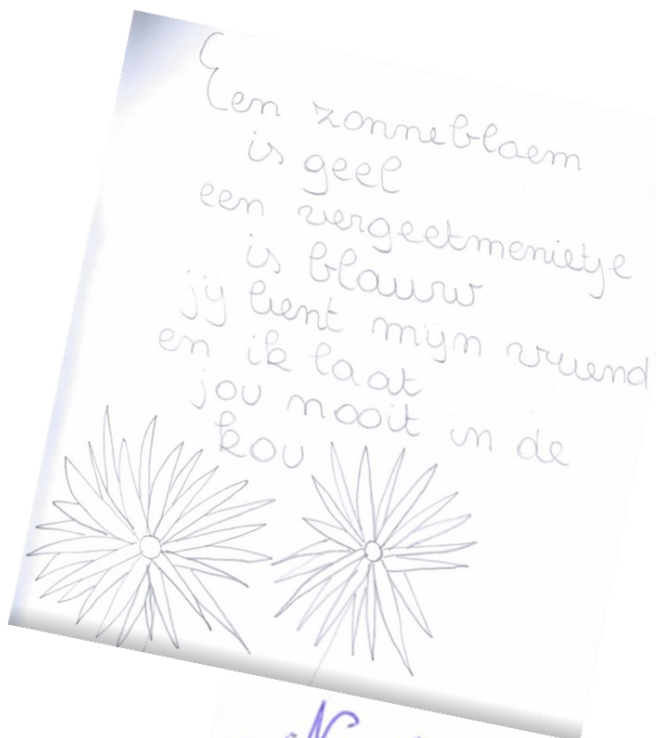 Een zonnebloem
is geel
een vergeetmenietje
is blauw
jij bent mijn vriend
en ik laat
jou nooit in de
kou